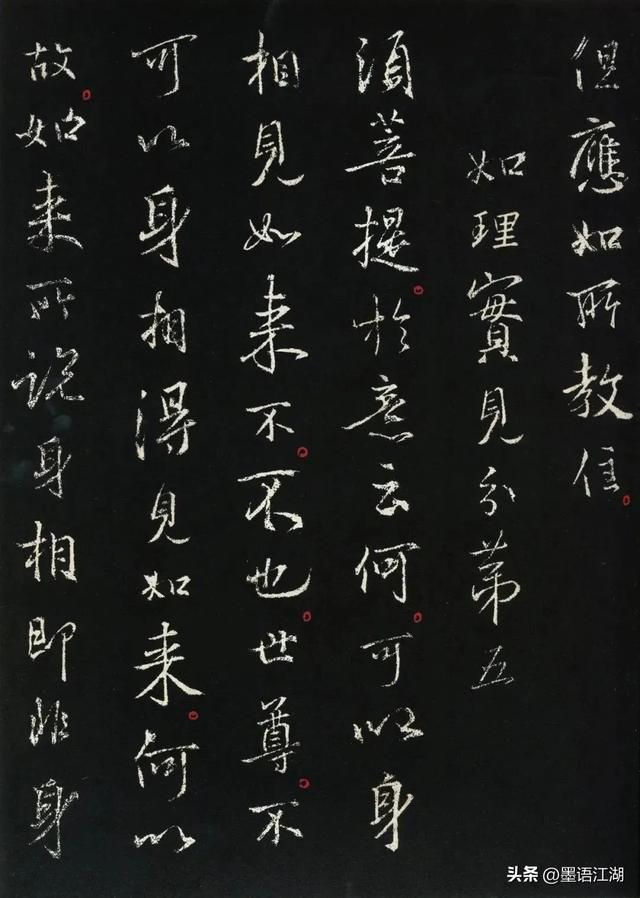 但應如所教住。
如理實見分第五
須菩提。於意云何。可以身
相見如来不。不也。世尊。不
可以身相得見如来。何以
故。如来所説身相即非身
头条 @墨语江湖